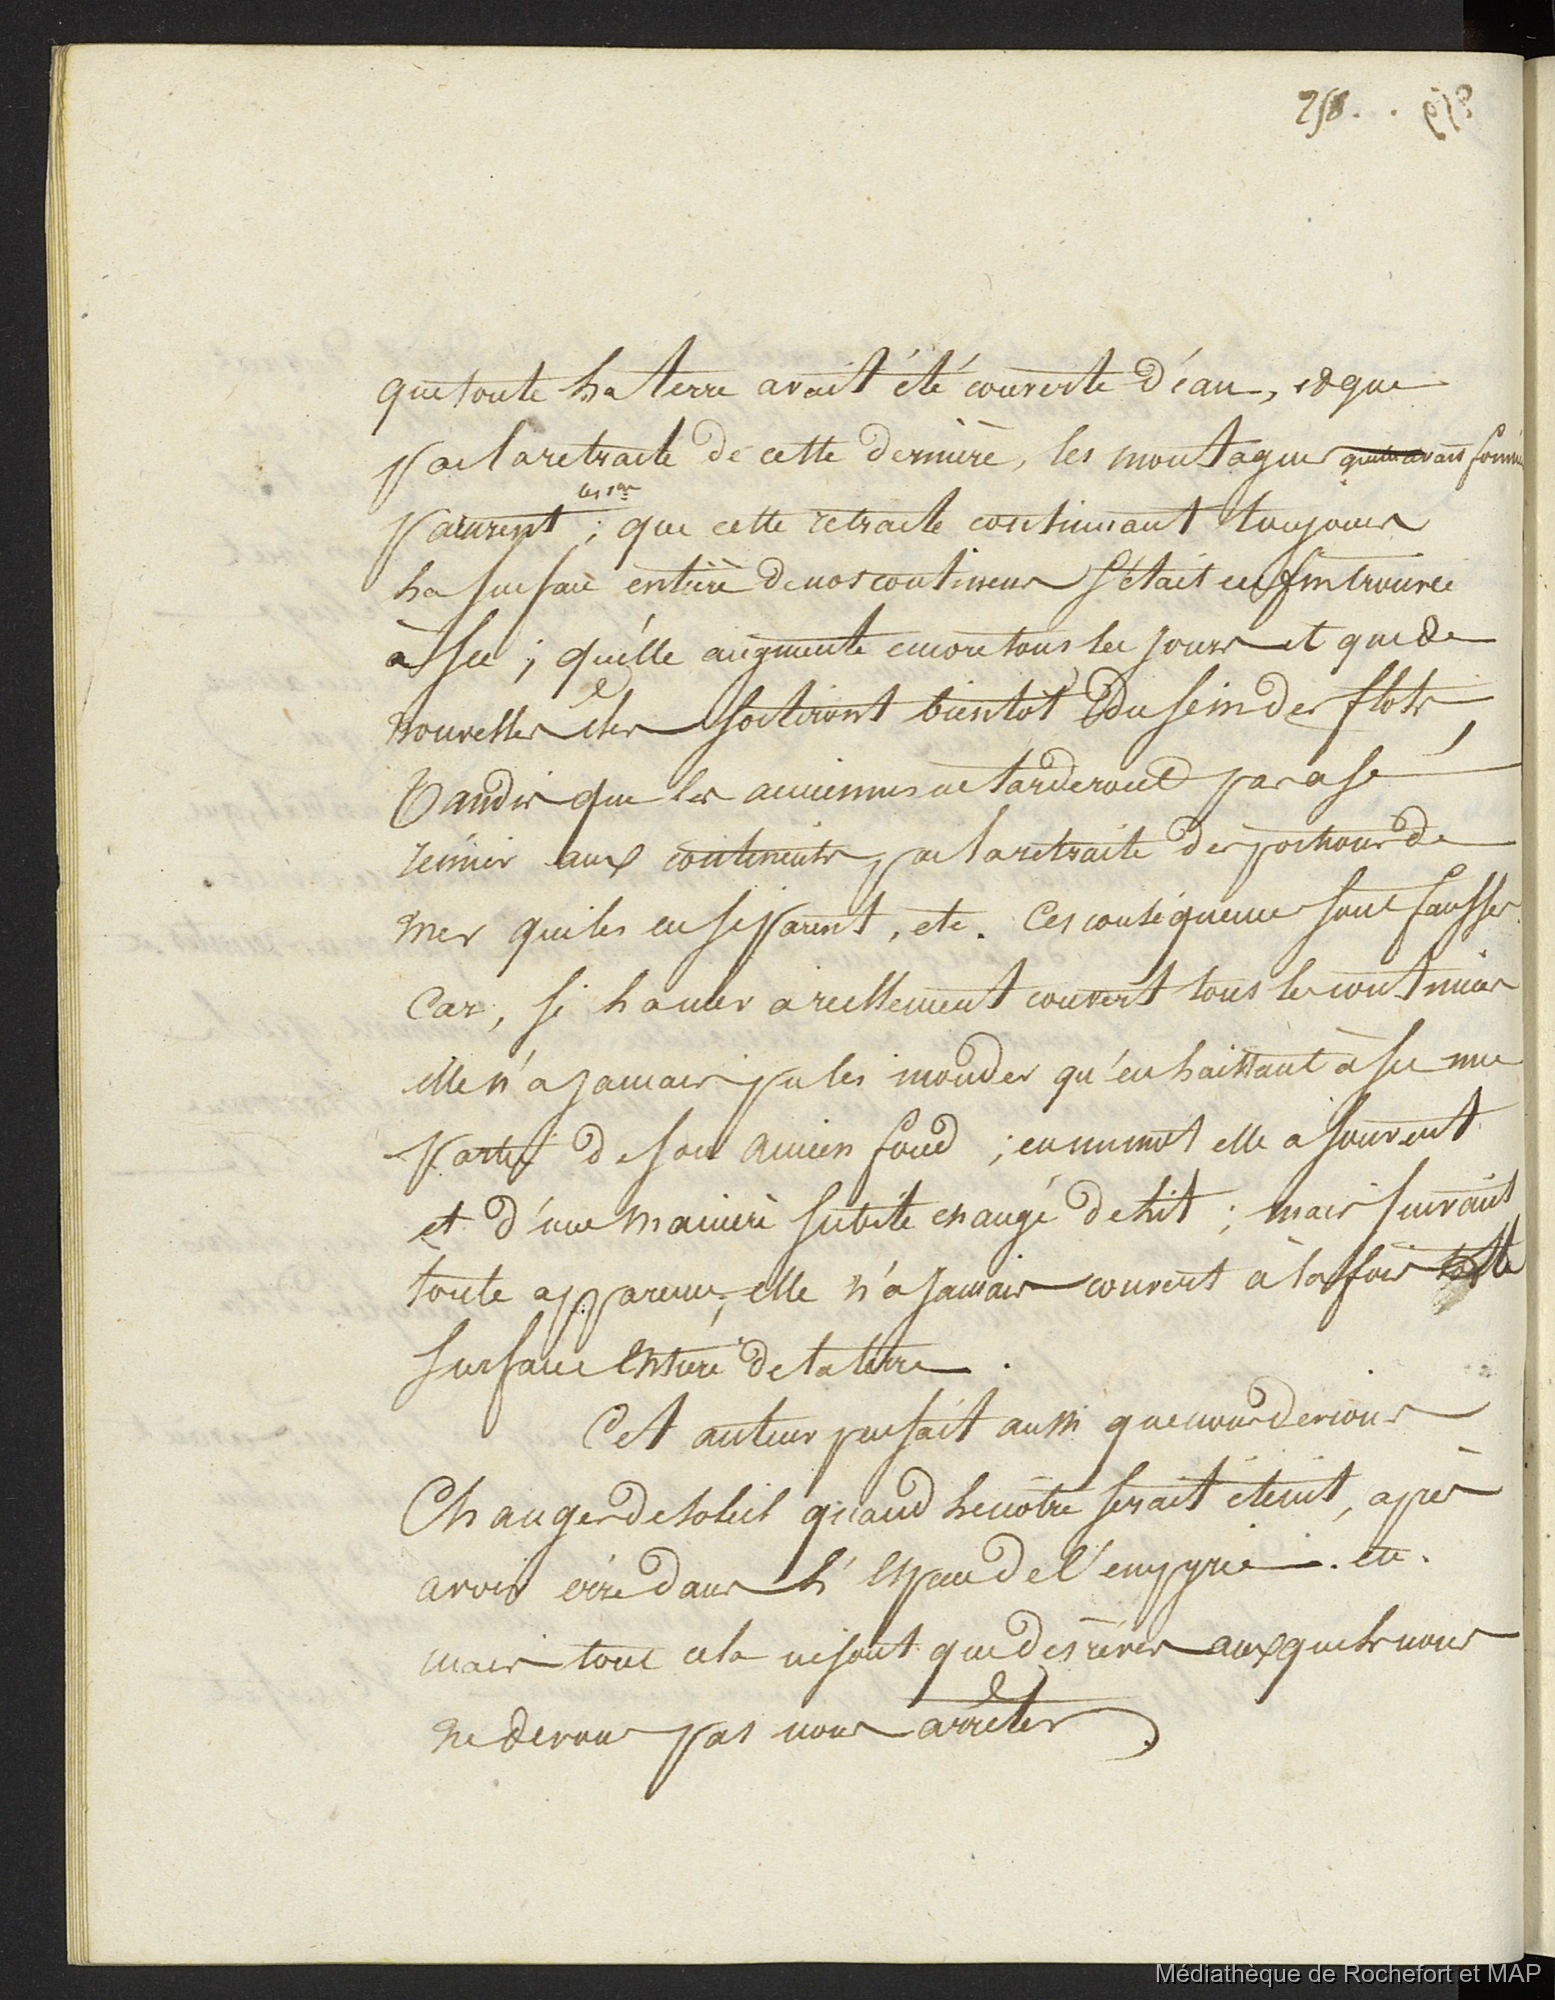 258.
que toute la terre avait été couverte d'eau, et que
par la retraite de cette dernière, les montagnes qu'elle avait formées
les 1ères
parurent ; que cette retraite continuant toujours
la surface entière de nos continens s'était enfin trouvée
à sec ; qu'elle augmente encore tous les jours et que de
nouvelles îles sortiront bientôt du sein des flots,
tandis que les anciennes ne tarderont pas a se
réunir aux continents par la retraite des portions de
mer qui les en séparent, etc. Ces conséquences sont fausses
Car, si la mer a réellement couvert tous les continens
elle n'a jamais pu les inonder qu'en laissant à sec une
partie de son ancien fond ; en un mot elle a souvent
et d'une manière subite changé de lit ; mais suivant
toute apparence, elle n'a jamais couvert à la fois
surface entière de la terre.
Cet auteur pensait aussi que nous devions
Changer de soleil quand le nôtre serait éteint, après
avoir érré dans l'espace de l'empyrée. etc.
mais tout cela ne sont que des rêves auxquels nous
ne devons pas nous arrêter
Médiathèque de Rochefort et MAP